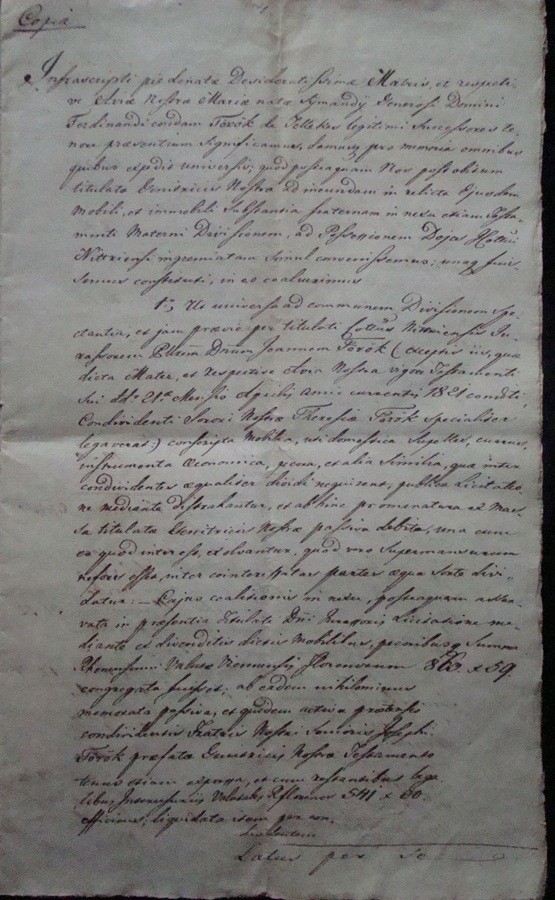 Copia
Infrascripti pie denatæ Desideratissimæ Matris, et respecti-
ve Aviæ Nostræ Mariæ natæ Symándy Generosi Domini
Ferdinandi condam Török de Telekes legitimi Successores te-
nore præsentium significamus, damusq pro memoria omnibus
quibus expedit universis; quod postquam Nos post obitum
titulatæ Genitricis Nostræ ad ineundam in relicta Ejusdem
Mobili, et immobili Substantia fraternam in nexu etiam Testa-
menti Materni Divisionem, ad Possessionem Dojas Cottui
Nittriensi ingremiatam Simul convenissemus; unaq fuis-
semus constituti, in eo coaluimus
1o, Ut universa ad communem Divisionem spe-
ctantia, et jam prævie per titulati Cottus Nittriensis Ju-
rassorem Dnum Joannem Török (exceptis iis, quæ
dicta Mater, et respective Avia Nostra vigore Testamenti
Sui ddo 21a Mensis Aprilis anni currentis 1821 conditi,
Condividenti Sorori Nostræ Theresiæ Török specialiter
legaverat) conscripta Mobilia, uti domestica Supellex, currus,
instrumenta œconomica, pecora, et alia Similia, quæ inter
condividentes æqualiter dividi nequirent, publica Licitatio-
ne mediante distrahantur, et ab hinc promenatura ex Mas-
sa titulatæ Genitricis Nostræ passiva debita, una cum
eo quod interest, exolvantur, quod vero Supermansurum
esse, inter cointeressatas partes æqua Sorte divi-
datur: — Cujus coalitionis in nexu, postquam
in præsentia Titulati Dni Jurassoris Licitatione me-
diante ex divenditis dictis Mobilibus, pecoribusq Summa
Valutæ Viennensis Florenorum 860 x 59.
congregata fuisset; ab eadem nihilominus
memorata passiva, et quidem activa prætensio
condividentis Fratris Nostri Senioris Josephi
Török præfatæ Genitricis Nostræ Testamento
tenus etiam expressa, et cum restantibus lega-
libus Interusuriis Valutales Rflorenos 541 x
efficiens, liquidata etiam per con-
dividentes
Latus per se